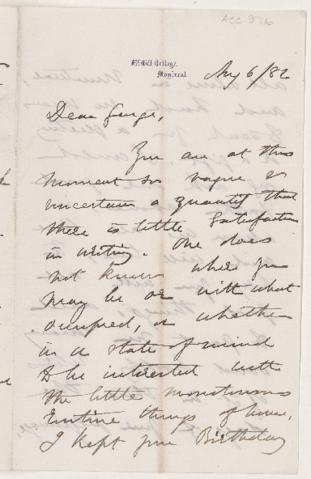 ACC-976
McGill College,
Montreal
Aug 6/82
Dear George,
You are at this
moment so vague &
uncertain a quantity that
there is little satisfaction
in writing. One does
not know where you
may be or with what
occupied, or whether
in a state of mind
to be interested with
the little monotonous
routine things of home.
I kept your Birthday